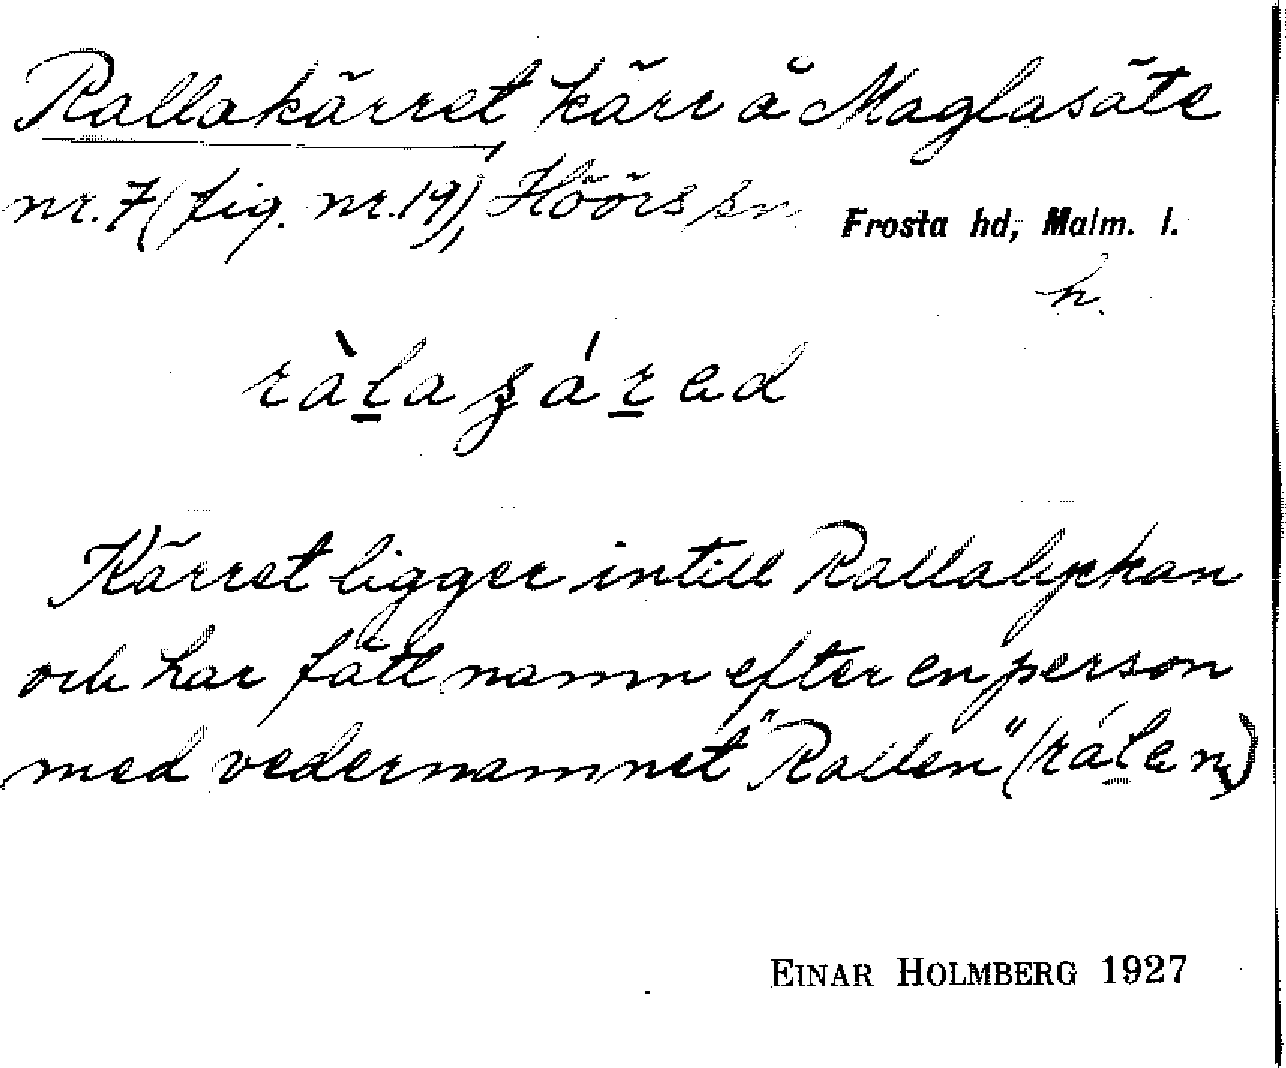 Rallakärret, kärr å Maglasäte
nr. 7 (fig. nr. 19), Höörs sn Frosta hd, Malm. l.
h.
ràl̲a ʒár̲ad
Kärret ligger intill Rallalyckan
och har fått namn efter en person
med vedernamnet "Rallen" (rál̲en)
EINAR HOLMBERG 1927